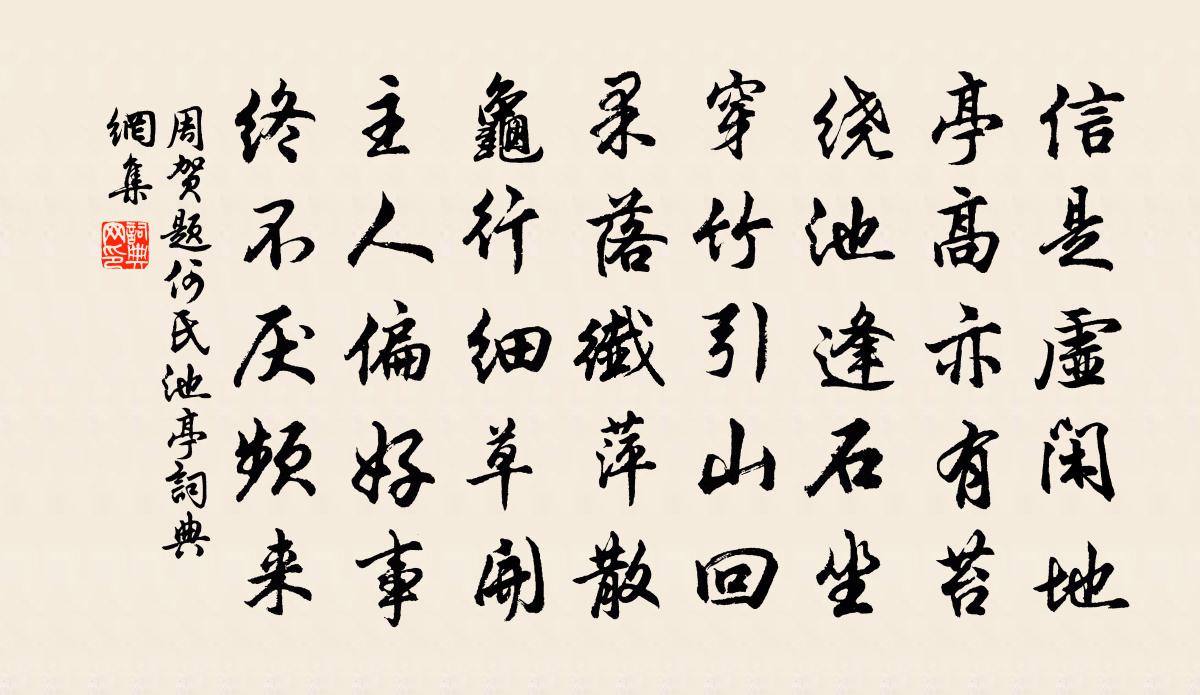 信是虛闲地
亭高亦有苔
绕池逢石坐
穿竹引山回
果落纖萍散
龜行细草開
主人偏好事
终不厌频来
周贺题何氏池亭詞典
網集
詞典
网印